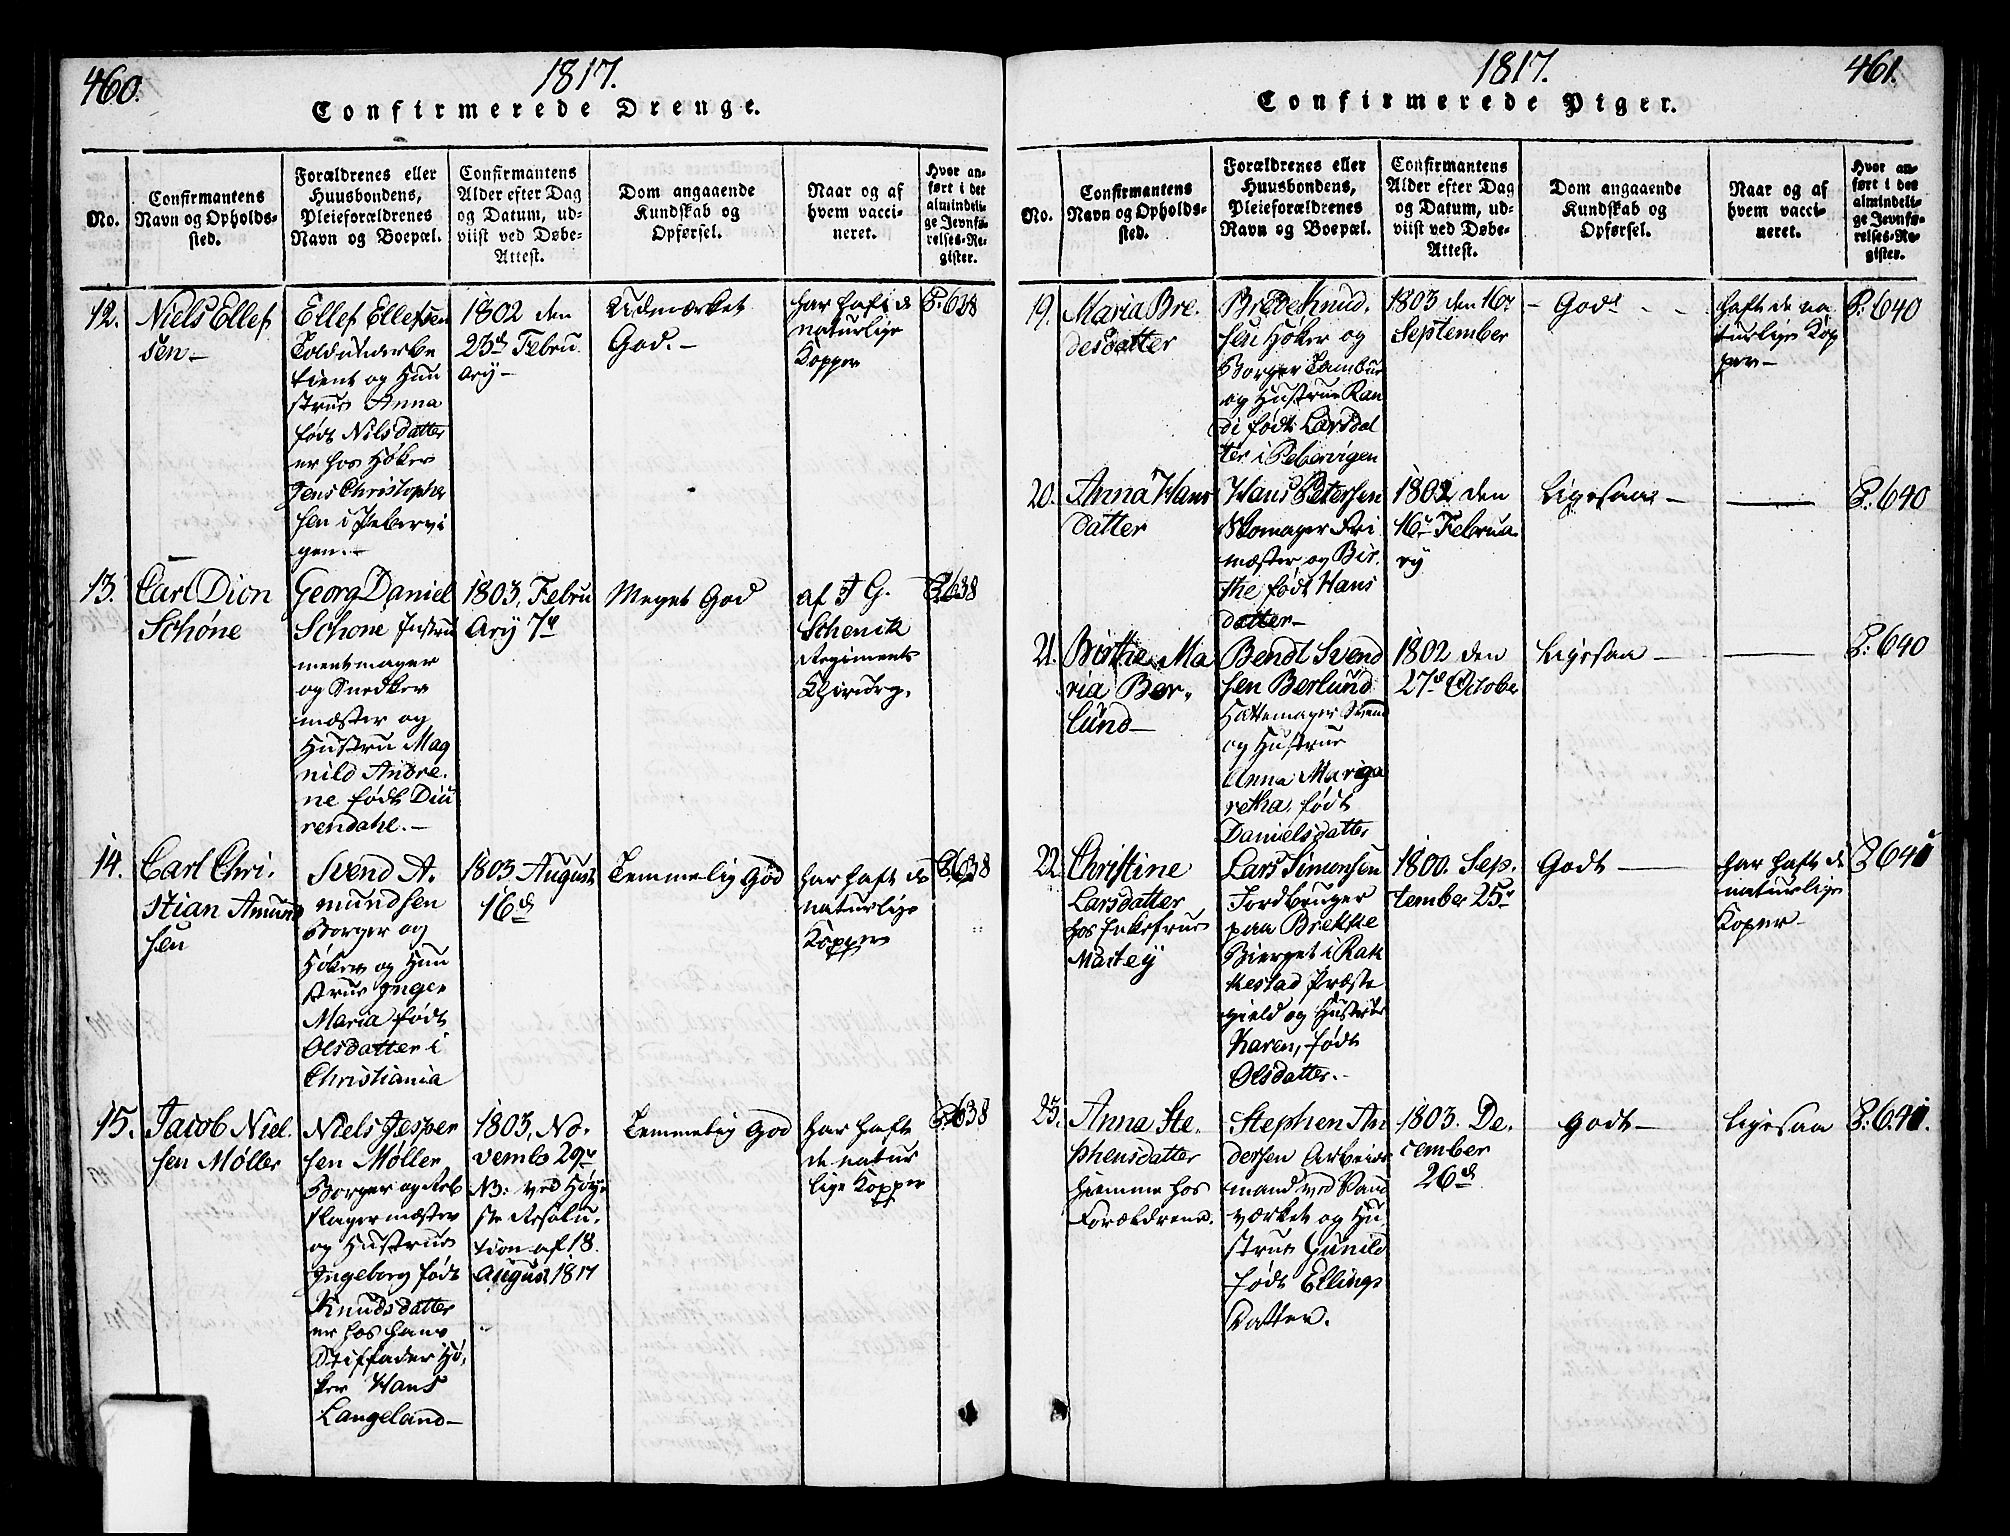 460.
1817.
Confirmerede Drenge.
No.
Confirmantens
Navn og Opholds-
sted.
Forældrenes eller
Huusbondens,
Pleieforældrenes
Navn og Boepæl.
Confirmantens
Alder efter Dag
og Datum, ud-
viist ved Døbe-
Attest.
Dom angaaende
Kundskab og
Opførsel.
Naar og af
hvem vacci-
neret.
Hvor an-
ført i det
almindeli-
ge Jevnfø-
relses-Re-
gister.
12.
Niels Ellef
sen_
Ellef Ellefsen
Toldunderbe
tient og Huu
strue Anna
født Nilsdatter
er hos Høker
Jens Christopher
sen i Pebervi
gen._
1802 den
23de Febru
ary_
Udmærket
God._
har haft de
naturlige
Kopper
P. 638
13.
Carl Dion
Schöne
Georg Daniel
Schöne Instru
mentmager
og Snedker
mester og
Hustru Mag
nild Andre
ne født Diu
rendahl._
1803. Febru
Ary 7de
Meget God
af J G.
Schenck
Regiments
Chirurg.
P. 638
14.
Carl Chri-
stian Amund
sen
Svend A-
mundsen
Borger og
Høker og Huu
strue Inger
Maria født
Olsdatter i
Christiania
1803 August
16de
Temmelig God
har haft de
naturlige
Kopper
P. 638
15.
Jacob Niel-
sen Møller
Niels Jesper
sen Møller
Borger og Reb
slagermester
og Hustrue
Ingeborg født
Knudsdatter
er hos hans
Stiffader Hø-
ker Hans
Langeland_
1803, No-
vembr 29de
NB: ved Høye
ste Resolu-
tion af 18.
August 1817
Temmelig God
har haft
de natur
lige Kopper
P. 638
1817.
461.
Confirmerede Piger.
No.
Confirmantens
Navn og Opholds-
sted.
Forældrenes eller
Huusbondens,
Pleieforældrenes
Navn og Boepæl.
Confirmantens
Alder efter Dag
og Datum, ud-
viist ved Døbe-
Attest.
Dom angaaende
Kundskab og
Opførsel.
Naar og af
hvem vacci-
neret.
Hvor an-
ført i det
almindeli-
ge Jevnfø-
relses-Re-
gister.
19.
Maria Bre-
desdatter
Brede Knud-
sen Høker og
Borger Tambur
og Hustrue Ran
di født Larsdat
ter i Pebervigen
1803 den 16de
September
Godt
haft de na
turlige Kop
per_
P. 640
20.
Anna Hans
datter
Hans Petersen
Skomager Fri
mester og Bir-
the født Hans
datter_
1802 den
16de Februa
ry
Ligesaa_
P. 640
21.
Birthe Ma
ria Ber-
lund_
Bendt Svend
sen Berlund
Hattemager Svend
og Hustrue
Anna Marga
retha, født
Danielsdatter
1802 den
27de October
Ligesaa_
P. 640
22.
Christine
Larsdatter
hos Enkefrue
Martey
Lars Simonsen
Jordbruger
paa Brekke
Bierget i Rak
kestad Præste
gield og Hustrue
Karen, født
Olsdatter._
1800. Sep-
tember 25de
Godt_
har haft de
naturlige
Koper_
P. 641
23.
Anna Ste-
phensdatter
hiemme hos
Forældrene.
Stephen An
dersen Arbeids
mand ved Vand
værket og Hu
strue Gunild
født Ellings
datter.
1803. De-
cember
26de
Godt_
Ligesaa
P. 641.